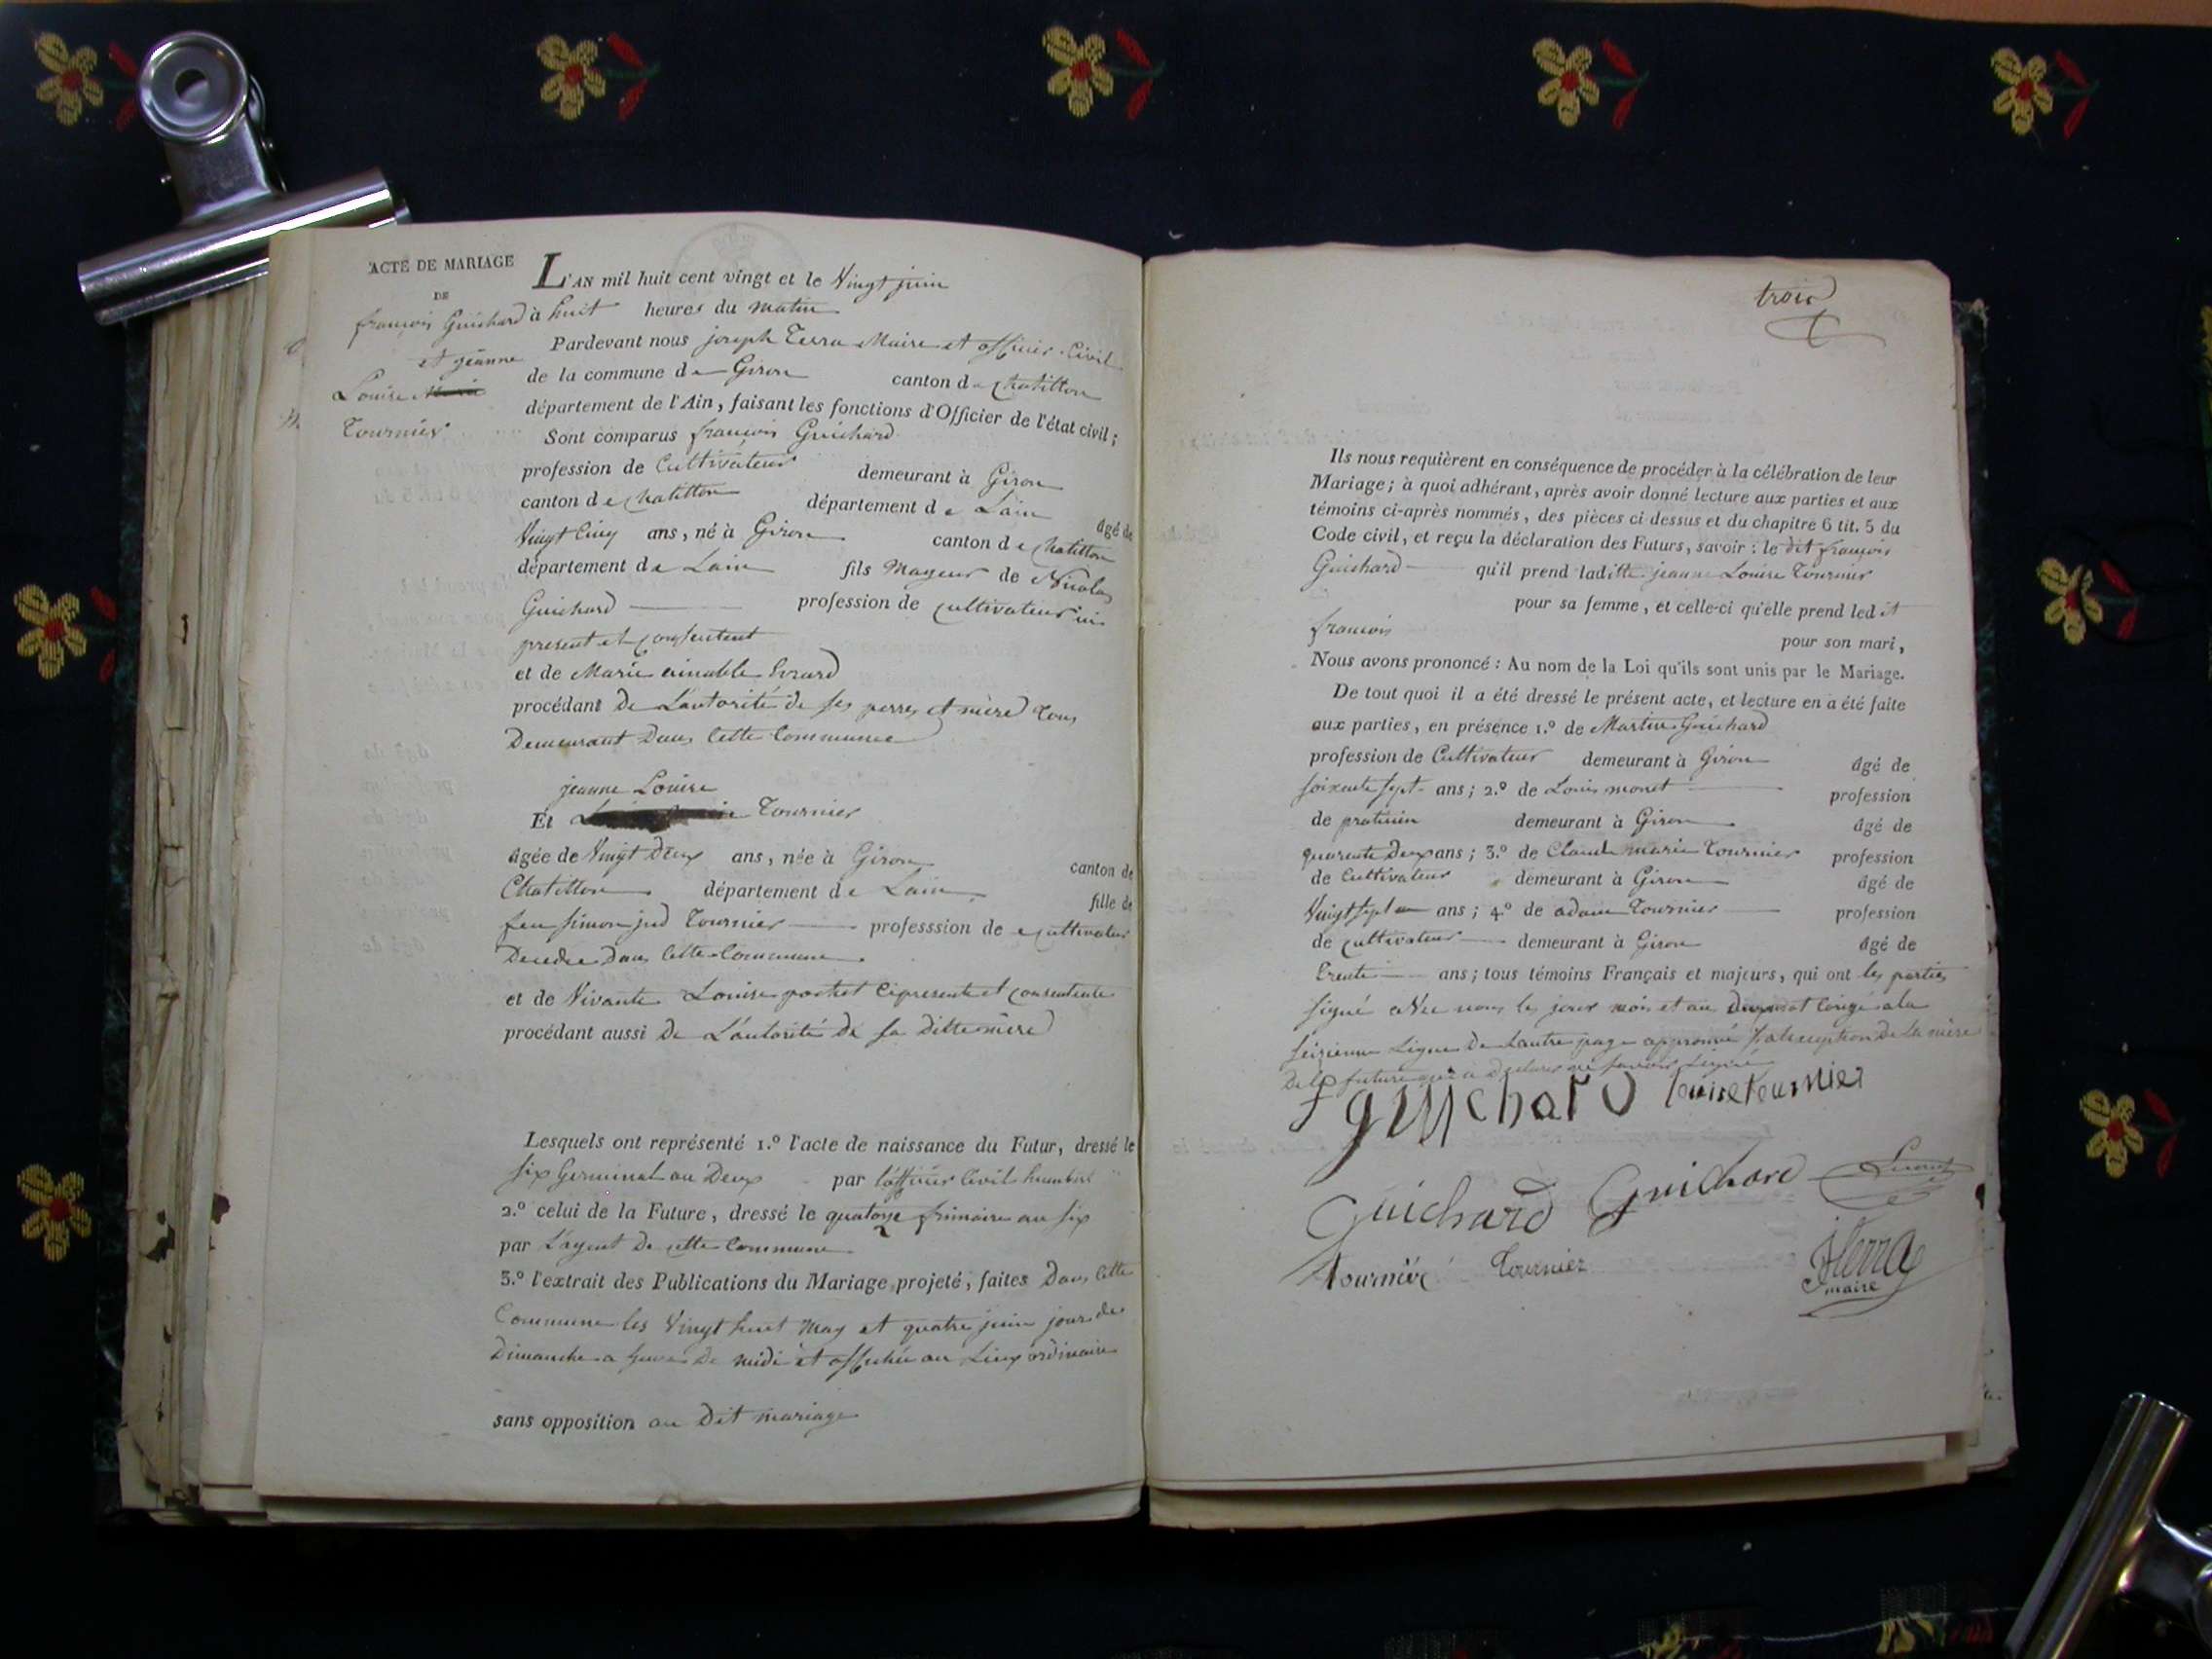 ACTE DE MARIAGE
DE
françois Guichard
et jeanne
Louise
Tournier
L'AN mil huit cent vingt et le Vingt juin
à huit heures du matin
Pardevant nous joseph Terra Maire et officier Civil
de la commune de Giron canton de Chatillon
département de l'Ain, faisant les fonctions d'Officier de l'état civil ;
Sont comparus françois Guichard
profession de Cultivateur demeurant à Giron
canton de Chatillon département de Lain âgé de
Vingt Cinq ans, né à Giron canton de Chatillon
département de Lain fils Mageur de Nicolas
Guichard profession de cultivateur ici
present et consentent
et de Marie aimable Evrard
procédant De Lautorité de ses perres et mère Tous
Demeurant Dans Cette Commune
jeanne Louise
Et Tournier
âgée de Vingt Deux ans, née à Giron canton de
Chatillon département de Lain fille de
feu simon jud Tournier professsion de cultivateur
Decedé Dans Cette Commune
et de Vivante Louise pochet Cipresente et consentente
procédant aussi De Lautorité de sa Ditte mère
Lesquels ont représenté 1.º l'acte de naissance du Futur, dressé le
six Germinal an Deux par l'officier Civil humbert
2.º celui de la Future, dressé le quatorze frimaire an six
par Lagent De cette Commune
3.º l'extrait des Publications du Mariage projeté, faites Dans Cette
Commune les Vingt huit May et quatre juin jours de
Dimanche a heure De midi et affichée au Lieux ordinaire
sans opposition au Dit mariage
trois
Ils nous requièrent en conséquence de procéder à la célébration de leur
Mariage ; à quoi adhérant, après avoir donné lecture aux parties et aux
témoins ci-après nommés, des pièces ci dessus et du chapitre 6 tit. 5 du
Code civil, et reçu la déclaration des Futurs, savoir : le dit françois
Guichard qu'il prend laditte jeanne Louise Tournier
pour sa femme, et celle-ci qu'elle prend ledit
françois pour son mari,
Nous avons prononcé : Au nom de la Loi qu'ils sont unis par le Mariage.
De tout quoi il a été dressé le présent acte, et lecture en a été faite
aux parties, en présence 1.º de Martin Guichard
profession de Cultivateur demeurant à Giron âgé de
soixente sept ans ; 2.º de Louis monet profession
de praticien demeurant à Giron âgé de
quarente Deux ans ; 3.º de Claude marie Tournier profession
de Cultivateur demeurant à Giron âgé de
Vingt sept ans ; 4º de adam Tournier profession
de cultivateur demeurant à Giron âgé de
Trente ans ; tous témoins Français et majeurs, qui ont les parties
signé aVec nous les jour mois et an mot corigé a la
seizieme Ligne De Lautre page approuvé De La mère
De la future qui a Déclarer ne savoir Signé
f guichard louise tournier
Guichard Guichard
tournier Tournier
JTerra
maire